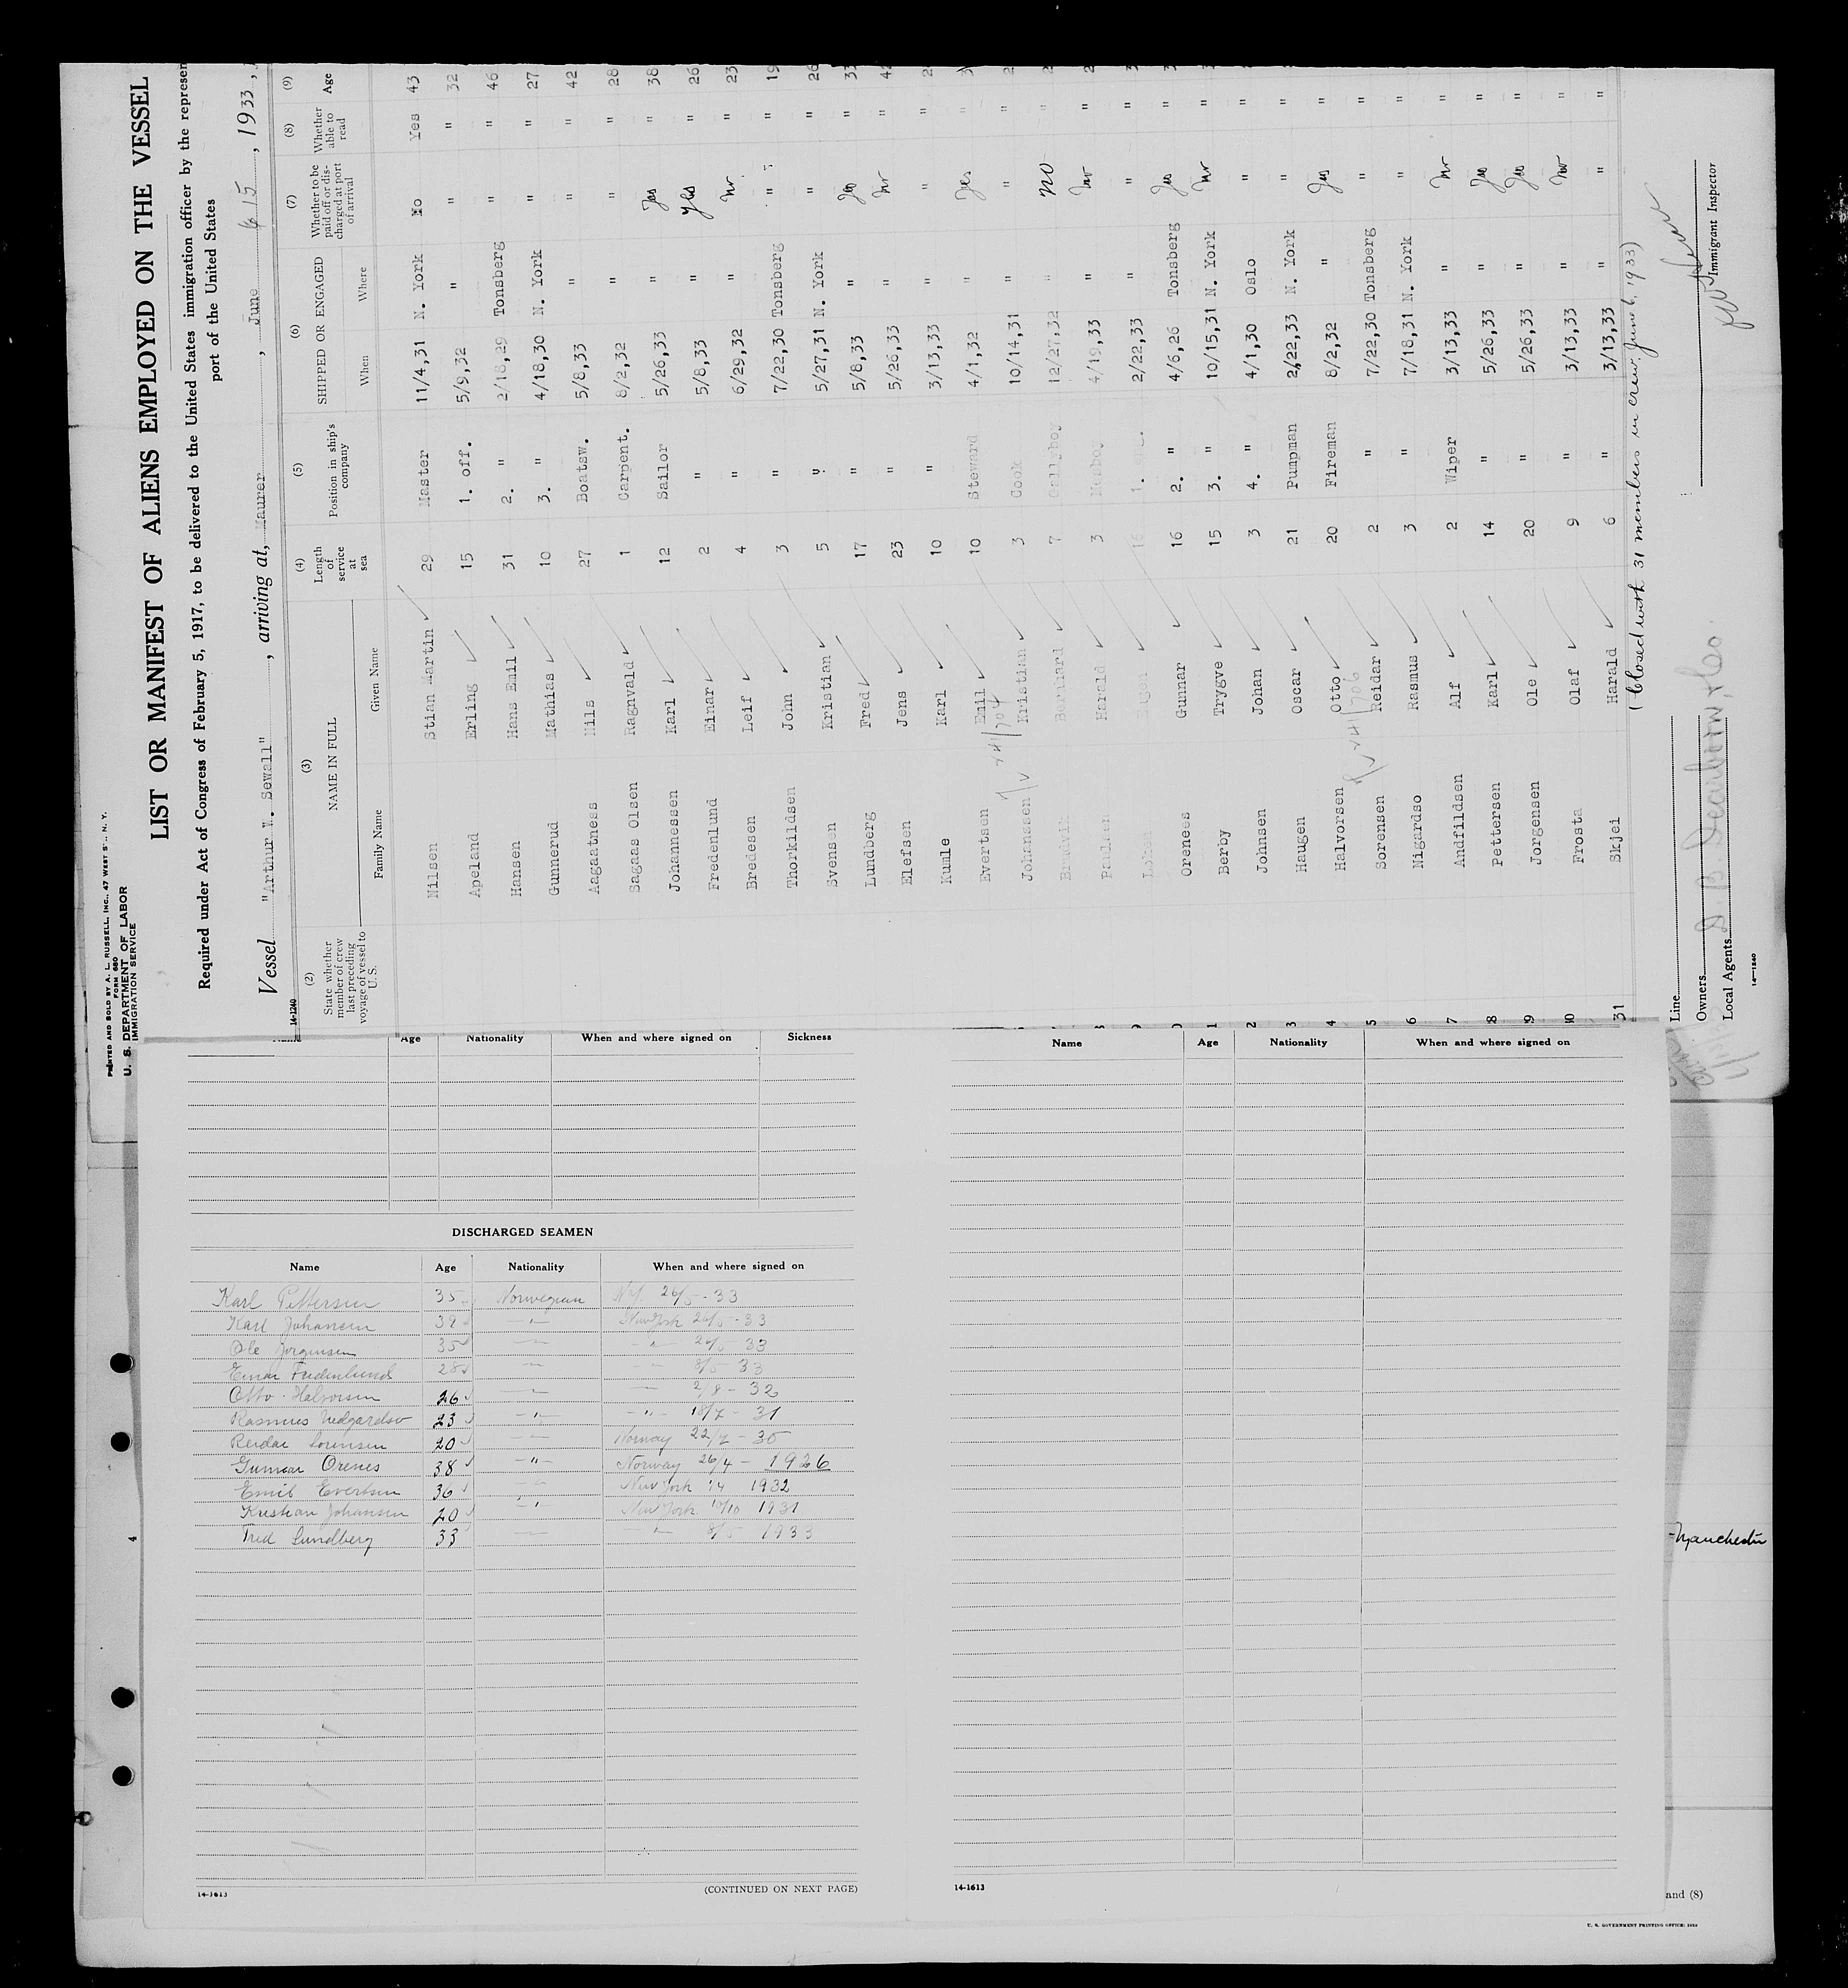 PRINTED AND SOLD BY A. L. RUSSELL, INC., 47 WEST ST., N. Y.
FORM 680
U. S. DEPARTMENT OF LABOR
IMMIGRATION SERVICE
LIST OR MANIFEST OF ALIENS EMPLOYED ON THE VESSEL
Required under Act of Congress of February 5, 1917, to be delivered to the United States immigration officer by the represen
port of the United States
Vessel "Arthur W. Sewall", arriving at, Maurer, June 6 15, 1933,
14-1240
(2) (3) (4) (5) (6) (7) (8) (9)
State whether member of crew last preceding voyage of vessel to U. S. NAME IN FULL Length of service at sea Position in ship's company SHIPPED OR ENGAGED Whether to be paid off or discharged at port of arrival Whether able to read Age
Family Name Given Name When Where
Nilsen Stian Martin 29 Master 11/4,31 N. York No Yes 43
Apeland Erling 15 1. off. 5/9,32 " " " 32
Hansen Hans Emil 31 2. " 2/18,29 Tonsberg " " 46
Gunnerud Mathias 10 3. " 4/18,30 N. York " " 27
Aagaatness Nils 27 Boatsw. 5/8,33 " " " 42
Sagaas Olsen Ragnvald 1 Carpent. 8/2,32 " " " 28
Johannessen Karl 12 Sailor 5/26,33 " Yes " 38
Fredenlund Einar 2 " 5/8,33 " Yes " 26
Bredesen Leif 4 " 6/29,32 " No " 23
Thorkildsen John 3 " 7/22,30 Tonsberg " " 19
Svensen Kristian 5 " 5/27,31 N. York " " 26
Lundberg Fred 17 " 5/8,33 " Yes " 33
Elefsen Jens 23 " 5/26,33 " No " 42
Kumle Karl 10 " 3/13,33 " " "
Evertsen Emil 10 Steward 4/1,32 " Yes "
Johanssen Kristian 3 Cook 10/14,31 " " "
Bernhard 7 Gallyboy 12/27,32 " No "
Paulsen Harald 3 Messboy 4/19,33 " No "
16 1. 2/22,33 " " "
Orenees Gunnar 16 2. " 4/6,26 Tonsberg Yes "
Berby Trygve 15 3. " 10/15,31 N. York No "
Johnsen Johan 3 4. " 4/1,30 Oslo " "
Haugen Oscar 21 Pumpman 2/22,33 N. York " "
Halvorsen Otto 20 Fireman 8/2,32 " Yes "
Sorensen Reidar 2 " 7/22,30 Tonsberg " "
Nigardso Rasmus 3 " 7/18,31 N. York " "
Andfildsen Alf 2 Wiper 3/13,33 " No "
Pettersen Karl 14 " 5/26,33 " Yes "
Jorgensen Ole 20 " 5/26,33 " Yes "
Frosta Olaf 9 " 3/13,33 " No "
31 Skjei Harald 6 " 3/13,33 " " "
(Closed with 31 members in crew June 6, 1933)
Line
Owners
Local Agents
Immigrant Inspector
14-1240
Name Age Nationality When and where signed on Sickness
DISCHARGED SEAMEN
Name Age Nationality When and where signed on
Karl Pettersen 35 Norwegian N.Y. 26/5-33
Karl Johansen 39 -"- New York 26/5-33
Ole Jorgensen 35 -"- -"- 26/5 33
Einar Fredenlund 28 -"- -"- 8/5 33
Otto Halvorsen 26 -"- -"- 2/8-32
Rasmus Nedgardso 23 -"- -"- 18/7-31
Reidar Sorensen 20 -"- Norway 22/7-30
Gunnar Orenes 38 -"- Norway 26/4-1926
Emil Evertsen 36 -"- New York 1/4 1932
Kristian Johansen 20 -"- New York 10/10 1931
Fred Lundberg 33 -"- -"- 8/5 1933
14-1613
(CONTINUED ON NEXT PAGE)
Name Age Nationality When and where signed on
14-1613
4
Manchester
and (8)
U. S. GOVERNMENT PRINTING OFFICE: